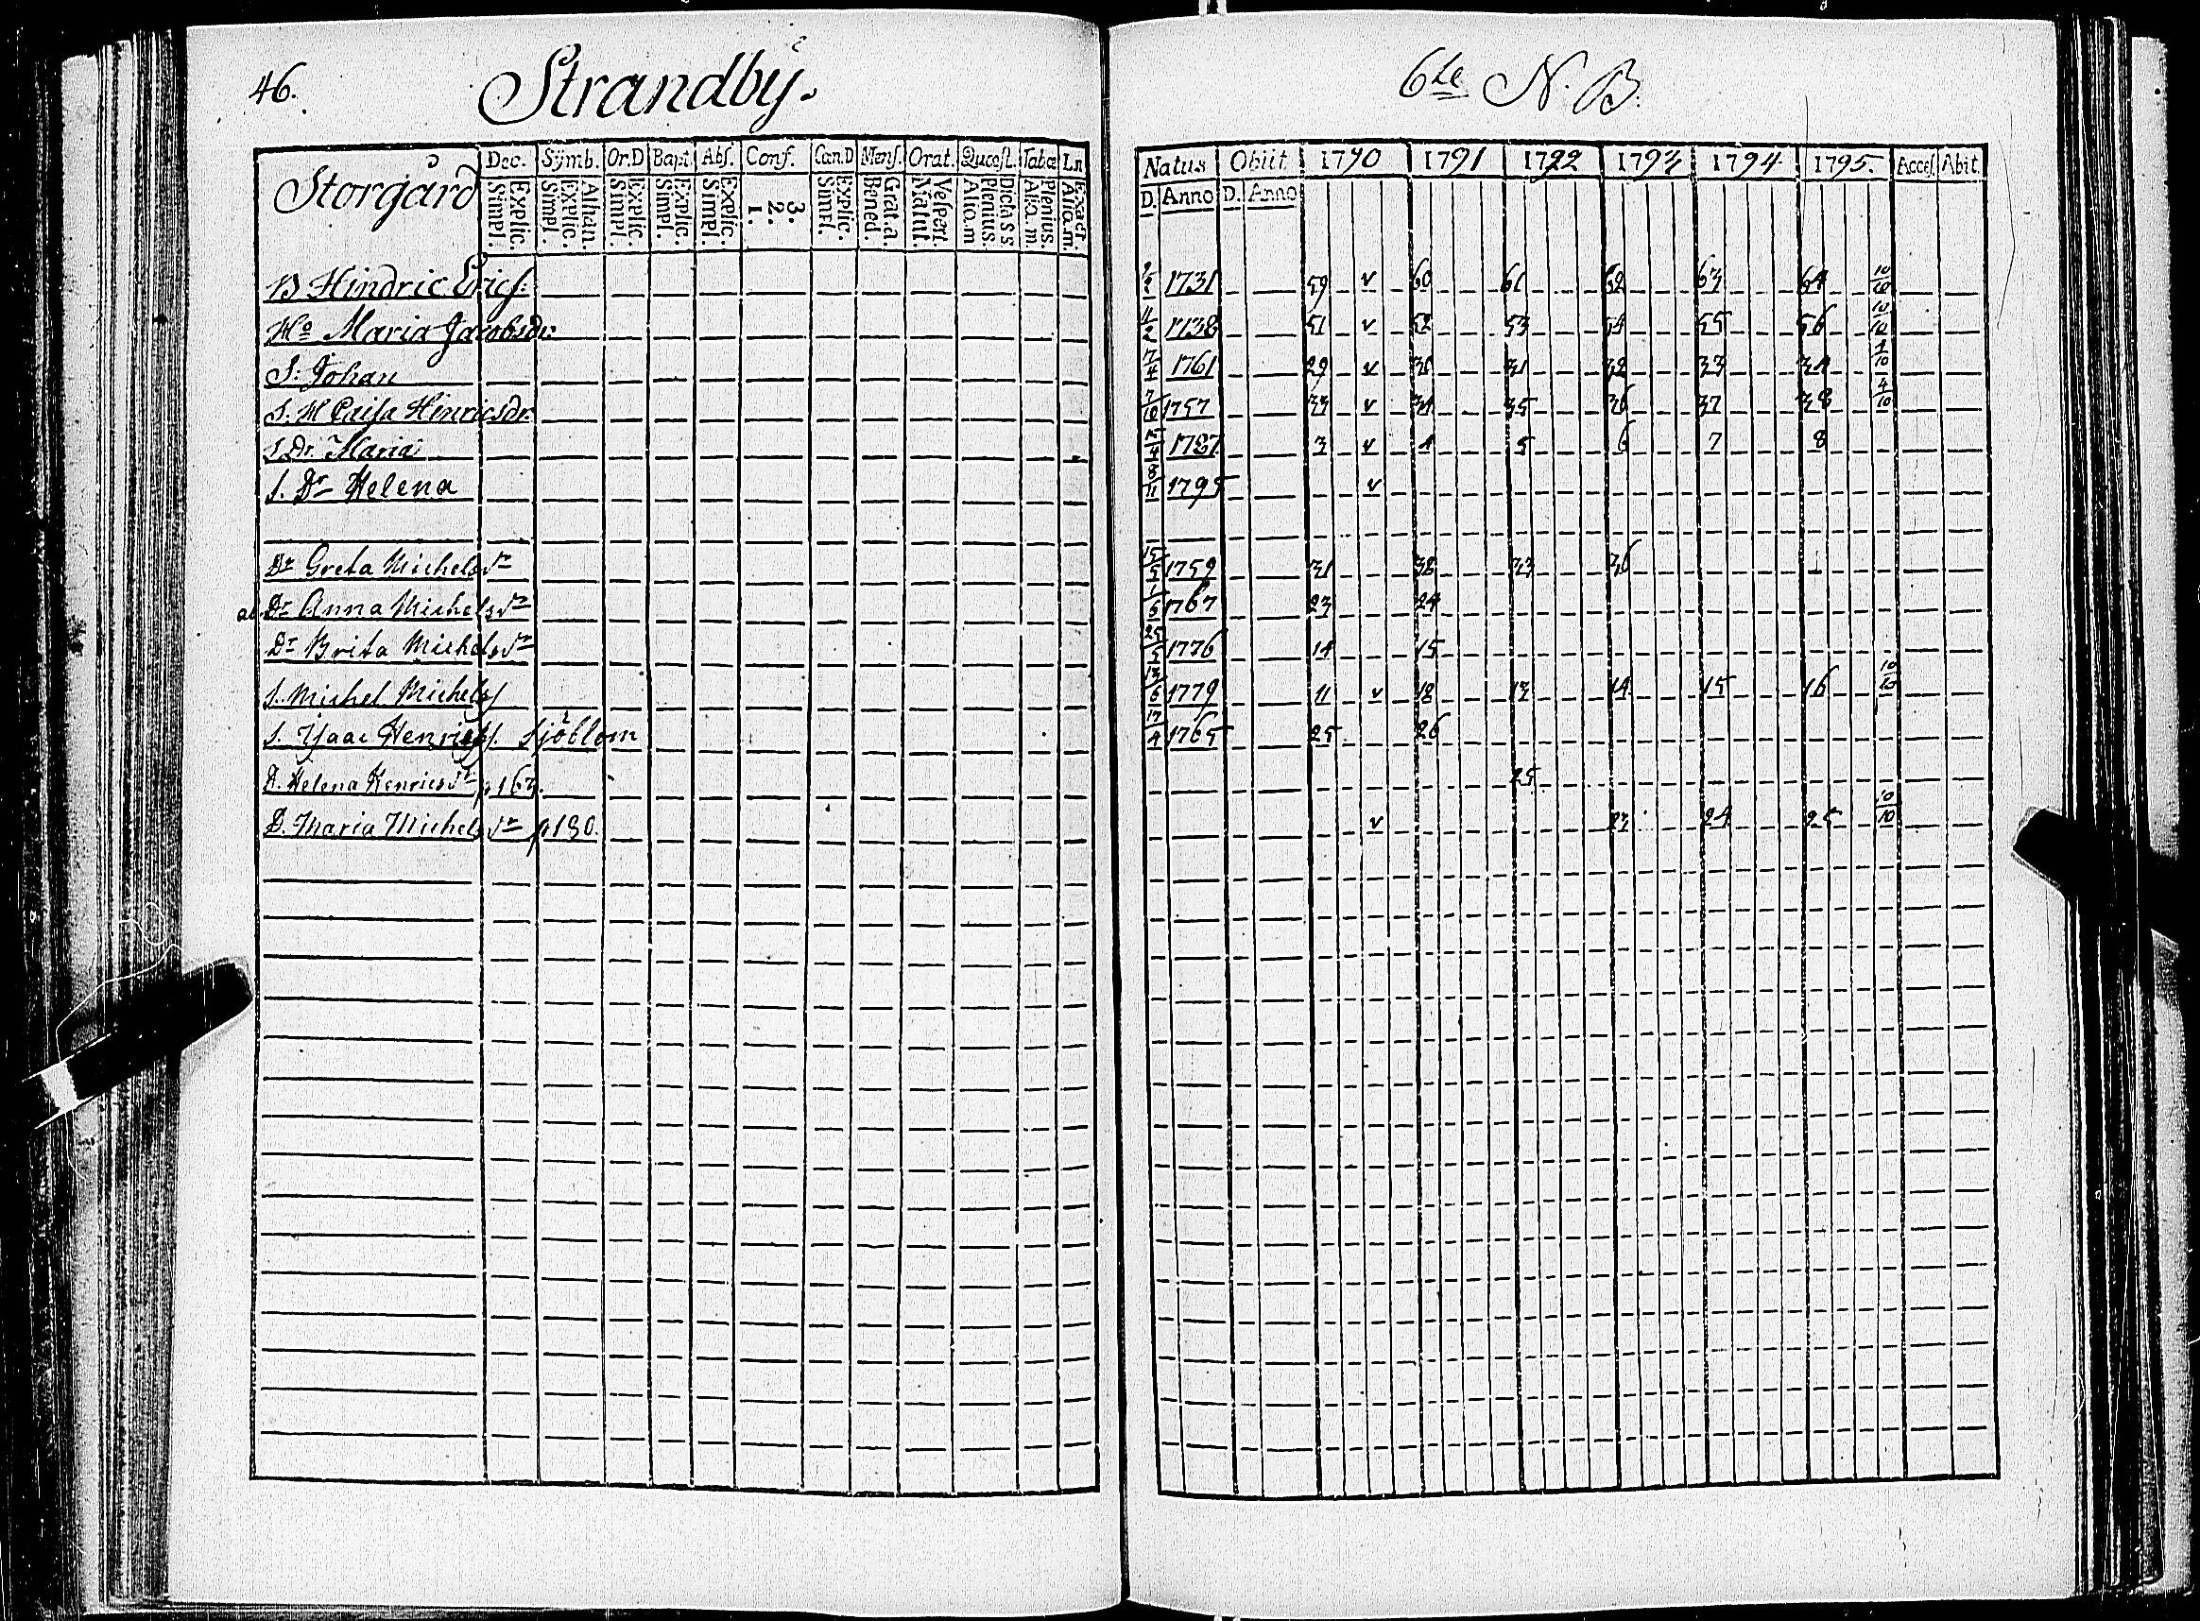 46.
Strandby.
Storgård
Dec. Symb. Or.D Bapt. Abs. Conf. Can.D Mens. Orat. Quæst. Tabæ Ln
Explic. Simpl. Athan. Explic. Simpl. Explic. Simpl. Explic. Simpl. Explic. Simpl. 3. 2. 1. Explic. Simpl. Grat. a. Bened Vespert. Matut. Dicta S S Plenius. Aliq. m Plenius. Aliq. m. Exacte. Aliq. m.
B Hindric Erics:
Ho Maria Jacobsdr:
S: Johan
S. H Caisa Hinricsdr.
S Dr. Maria
S. Dr Helena
Dr Greta Michelsdr
Dr Anna Michelsdr
Dr Brita Michelsdr
S. Michel Michels
S. Isaac Henrics. Sjöblom
D. Helena Henricsdr p. 163.
D. Maria Michelsdr p. 180.
6te N. B.
Natus Obiit 1790 1791 1792 1793 1794 1795. Acces. Abit.
D. Anno D. Anno
1731 59 v 60 61 62 63 64 10/10
11/2 1738 51 v 52 53 54 55 56 10/10
7/4 1761 29 v 30 31 32 33 34
7/10 1757 33 v 34 35 36 37 38 4/10
15/4 1787 3 v 4 5 6 7 8
8/11 1795 v
15/5 1759 31 32 33 36
1767 23 24
25/5 1776 14 15
13/6 1779 11 v 12 13 14 15 16 10/10
17/4 1765 25 26
25
v 23 24 25 10/10